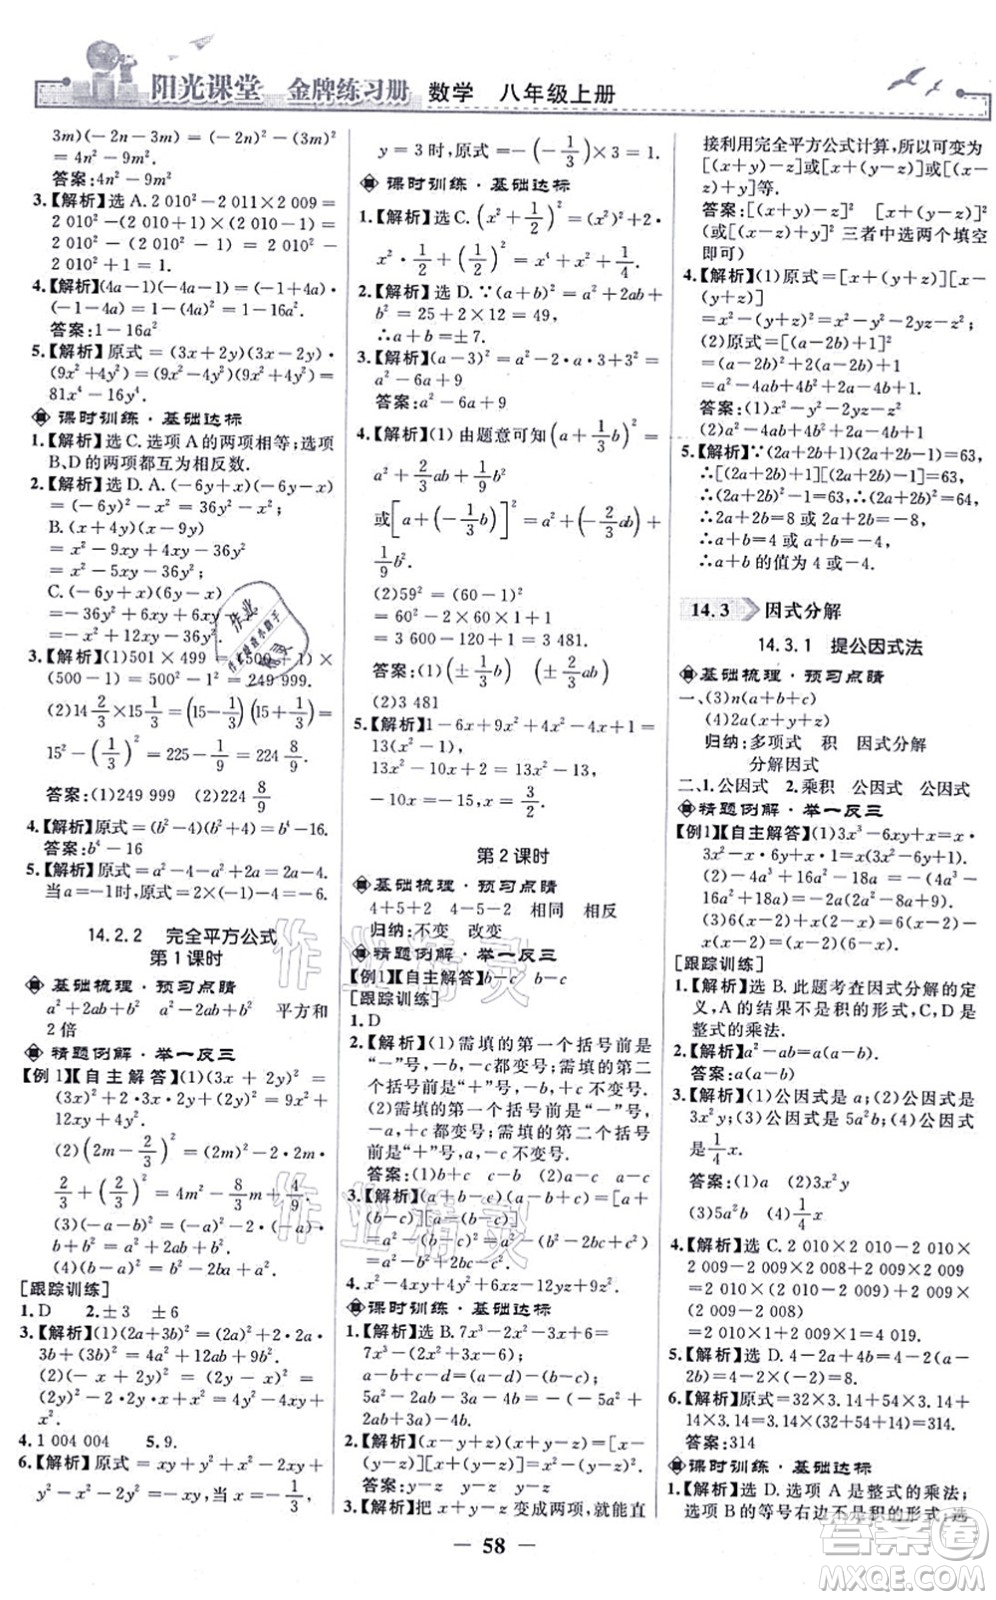 阳光课堂 金牌练习册 数学 八年级上册
3m)(-2n-3m)=(-2n)²-(3m)²=4n²-9m².
答案:4n²-9m²
3.【解析】选 A.2 010²-2 011×2 009=
2 010²-(2 010+1)×(2 010-1)=
2 010²-(2 010²-1)=2 010²-
2 010²+1=1.
4.【解析】(4a-1)(-4a-1)=(-1+4a)
(-1-4a)=(-1)²-(4a)²=1-16a².
答案:1-16a²
5.【解析】原式=(3x+2y)(3x-2y)·
(9x²+4y²)=(9x²-4y²)(9x²+4y²)=
81x⁴-16y⁴.
课时训练·基础达标
1.【解析】选 C.选项 A 的两项相等;选项
B、D 的两项都互为相反数.
2.【解析】选 D.A.(-6y+x)(-6y-x)
=(-6y)²-x²=36y²-x²;
B.(x+4y)(x-9y)
=x²-5xy-36y²;
C.(-6y+x)(6y-x)
=-36y²+12xy-x².
3.【解析】(1)501×499=(500+1)×
(500-1)=500²-1²=249 999.
(2)14 2/3×15 1/3=(15-1/3)(15+1/3)=
15²-(1/3)²=225-1/9=224 8/9
答案:(1)249 999 (2)224 8/9
4.【解析】原式=(b²-4)(b²+4)=b⁴-16.
答案:b⁴-16
5.【解析】原式=a²-4-a²+2a=2a-4.
当a=-1时,原式=2×(-1)-4=-6.
14.2.2 完全平方公式
第1课时
基础梳理·预习点睛
a²+2ab+b² a²-2ab+b² 平方和
2倍
精题例解·举一反三
【例1】【自主解答】(1)(3x+2y)²=
(3x)²+2·3x·2y+(2y)²=9x²+
12xy+4y².
(2)(2m-2/3)²=(2m)²-2·2m·
2/3+(2/3)²=4m²-8/3m+4/9.
(3)(-a-b)²=(-a)²-2·(-a)·
b+b²=a²+2ab+b².
(4)(-a+b)²=b²-2ab+a².
[跟踪训练]
1.D 2.±3 ±6
3.【解析】(1)(2a+3b)²=(2a)²+2·
2a·3b+(3b)²=4a²+12ab+9b².
(2)(-x+2y)²=(-x)²+2·
(-x)·(2y)+(2y)²=x²-4xy+
4y².
4.1 004 004 5.9.
6.【解析】原式=xy+y²+x²-2xy+
y²-x²-2y²=-xy,当x=-1/3,
y=3时,原式=-(-1/3)×3=1.
课时训练·基础达标
1.【解析】选 C.(x²+1/2)²=(x²)²+2·
x²·1/2+(1/2)²=x⁴+x²+1/4.
2.【解析】选 D.∵(a+b)²=a²+2ab+b²
=25+2×12=49,
∴a+b=±7.
3.【解析】(a-3)²=a²-2·a·3+3²=
a²-6a+9.
答案:a²-6a+9
4.【解析】(1)由题意可知(a+1/3b)²=
a²+2/3ab+1/9b²
或[a+(-1/3b)]²=a²+(-2/3ab)+
1/9b².
(2)59²=(60-1)²=60²-2×60+1=
3 600-120+1=3 481
答案:(1)(±1/3b) (±2/3ab)
(2)3 481
5.【解析】1-6x+9x²+4x²-4x+1=
13(x²-1),
13x²-10x+2=13x²-13,
-10x=-15,x=3/2.
第2课时
基础梳理·预习点睛
4+5+2 4-5-2 相同 相反
归纳:不变 改变
精题例解·举一反三
【例1】【自主解答】b-c b-c
[跟踪训练]
1.D
2.【解析】(1)需填的第一个括号前是
“-”号,-b、-c都变号;需填的第二
个括号前是“+”号,b、c不变号.
(2)需填的第一个括号前是“-”号,
-b、+c都变号;需填的第二个括号
前是“+”号,a、-c不变号.
答案:(1)b+c c-b (2)b-c a-c
3.【解析】(a+b-c)(a-b+c)=[a+
(b-c)][a-(b-c)]
=a²-(b-c)²=a²-b²+2bc-c².
4.x²-4xy+4y²+6xz-12yz+9z².
课时训练·基础达标
1.【解析】选 B.7x³-2x²-3x+6=
7x³-(2x²+3x-6);
a-b+c-d=a-(b-c+d);
5a²-6ab-2a-3b=
5a²-(6ab+2a+3b).
2.【解析】(-x-y+z)(x-y+z)=[-x-
(y-z)][x-(y-z)].
答案:y-z y-z
3.【解析】把x+y-z变成两项,就能直
接利用完全平方公式计算,所以可变为
[(x+y)-z]或[x+(y-z)]或[(x-
z)+y]等.
答案:[(x+y)-z]² [x+(y-z)]²
(或[(x-z)+y]²三者中选两个填空
即可)
4.【解析】(1)原式=[x+(y+z)][x-
(y+z)]
=x²-(y+z)²=x²-(y²+2yz+z²)
=x²-y²-2yz-z²;
(2)原式=[(a-1)²]²=(a²-2a
+1)²
=a⁴-4a³+6a²-4a+1.
答案:(1)x²-y²-2yz-z²
(2)a⁴-4a³+6a²-4a+1
5.【解析】∵(2a+2b+1)(2a+2b-1)=63,
∴[(2a+2b)+1][(2a+2b)-1]=63,
∴(2a+2b)²-1=63,(2a+2b)²=64,
∴2a+2b=8或2a+2b=-8,
∴a+b=4或a+b=-4,
∴a+b的值为4或-4.
14.3 因式分解
14.3.1 提公因式法
基础梳理·预习点睛
一、(3)n(a+b+c)
(4)2a(x+y)
归纳:多项式 积 因式分解
分解因式
二、1.公因式 2.乘积 公因式 公因式
精题例解·举一反三
【例1】【自主解答】(1)3x²-6xy+x=x·
3x-x·6y+x·1=x(3x-6y+1).
(2)-4a³+16a²-18a=-(4a³-
16a²+18a)=-2a(2a²-8a+9).
(3)6(x-2)+x(2-x)=6(x-2)-
x(x-2)=(x-2)(6-x).
[跟踪训练]
1.【解析】选 B.此题考查因式分解的定
义,A 的结果不是积的形式,C、D 是
整式的乘法.
2.【解析】a²-ab=a(a-b).
答案:a(a-b)
3.【解析】(1)公因式是a;(2)公因式是
3x²y;(3)公因式是5a²b;(4)公因式
是1/4x.
答案:(1)a (2)3x²y
(3)5a²b (4)1/4x
4.【解析】选 C.2 010×2 010-2 010×
2 009+2 009×2 009-2 008×2 009=
2 010×(2 010-2 009)+2 009×
(2 009-2 008)
=2 010×1+2 009×1=4 019.
5.【解析】选 D.4-2a+4b=4-
2(a-2b)=4-2×(-2)=8.
6.【解析】原式=32×3.14+54×3.14+
14×3.14=3.14×(32+54+14)=314.
答案:314
课时训练·基础达标
1.【解析】选项 A 是整式的乘法;
选项 B 的等号右边不是积的形式;选
— 58 —
作业精灵
作业精灵
答案圈
MXQE.COM